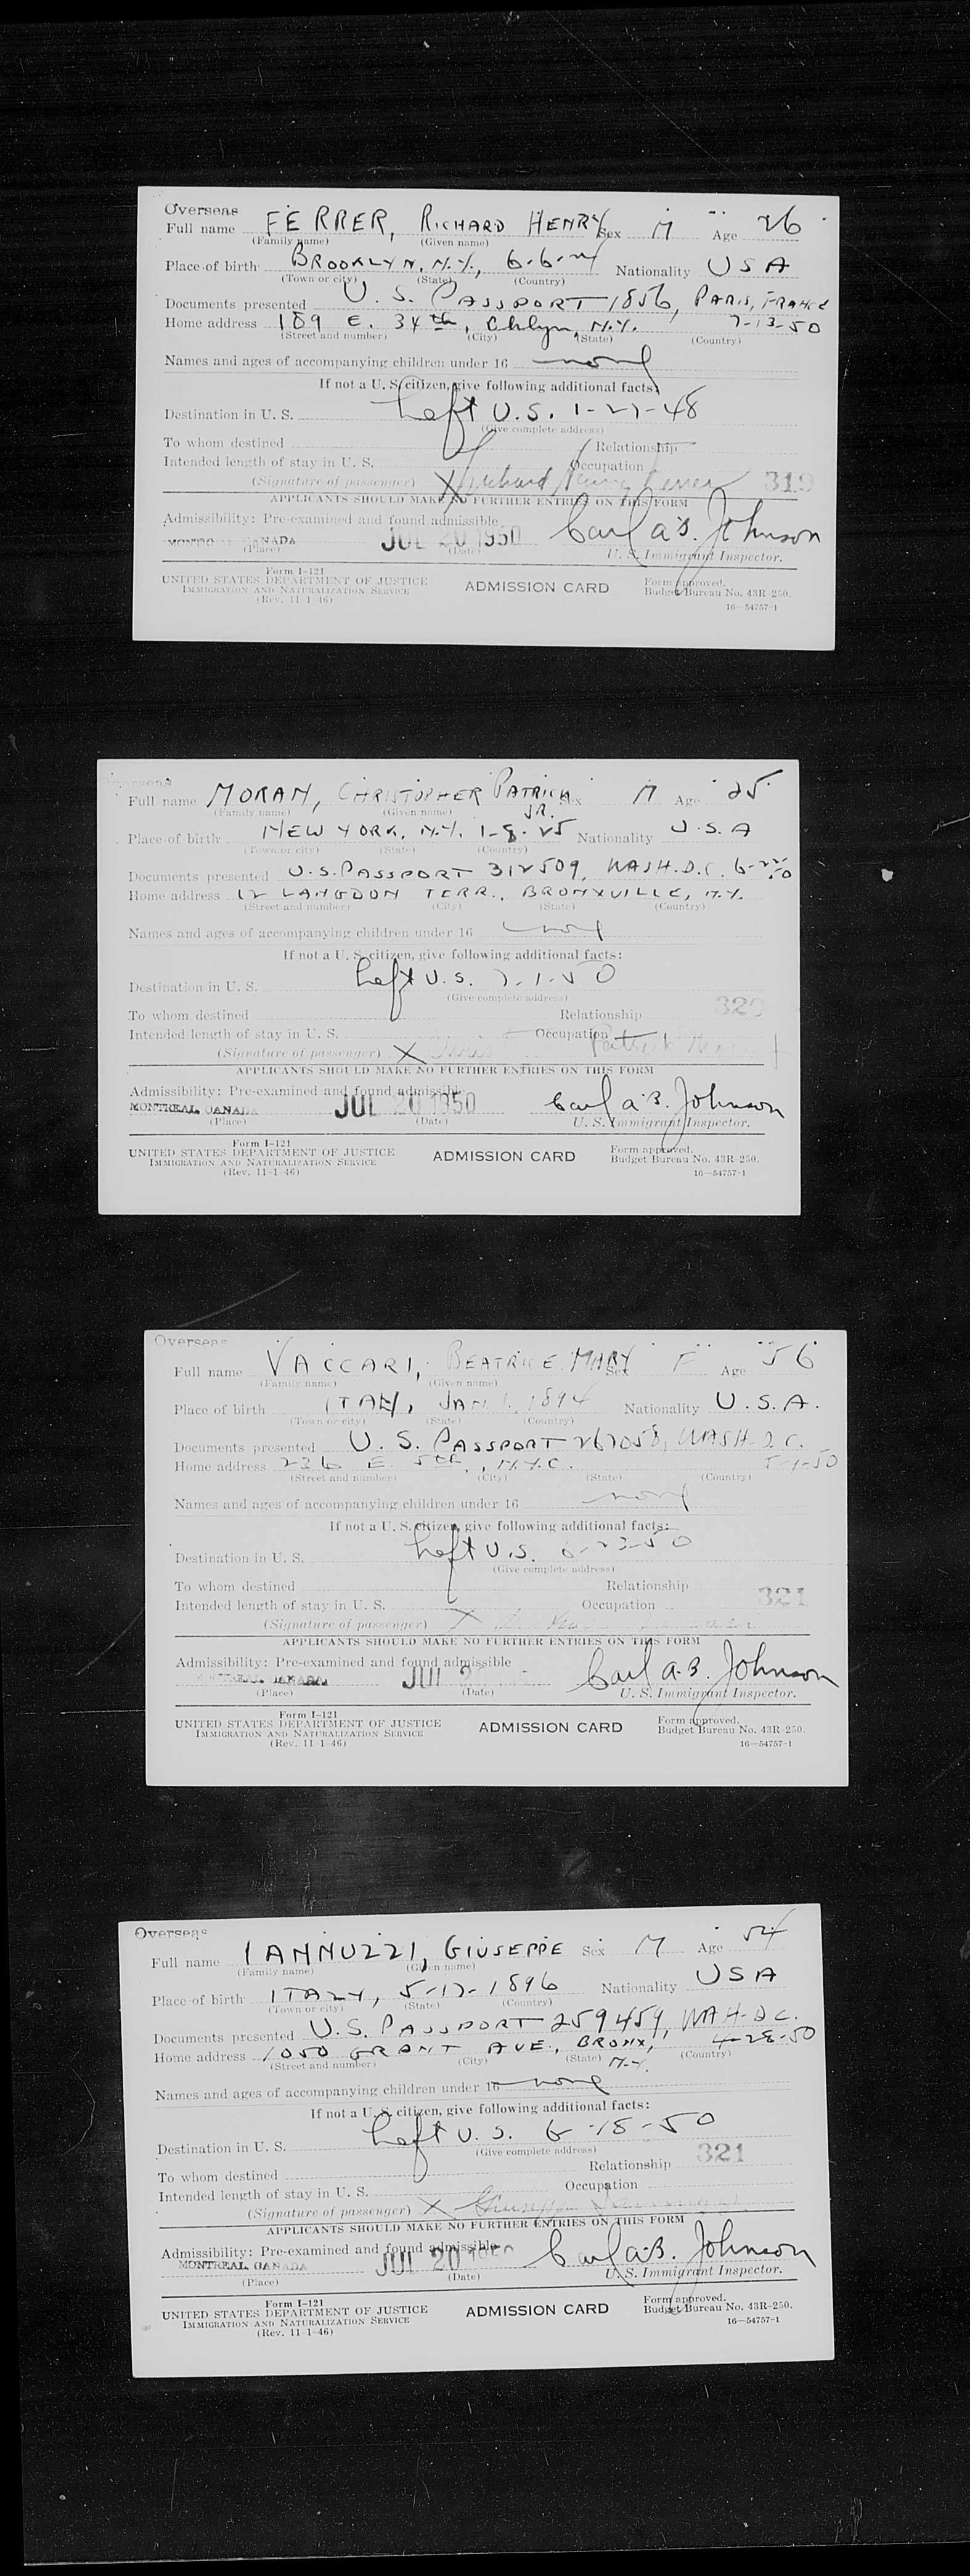 Overseas
Full name FERRER, RICHARD HENRY Sex M Age 26
(Family name) (Given name)
Place of birth BROOKLYN, N.Y., 6-6-24 Nationality USA
(Town or city) (State) (Country)
Documents presented U. S. PASSPORT 1856, PARIS, FRANCE
Home address 189 E. 34th, Bklyn, N.Y. 7-13-50
(Street and number) (City) (State) (Country)
Names and ages of accompanying children under 16 none
If not a U. S. citizen, give following additional facts:
Destination in U. S. Left U.S. 1-27-48
(Give complete address)
To whom destined Relationship
Intended length of stay in U. S. Occupation
(Signature of passenger) X Richard Henry Ferrer 319
APPLICANTS SHOULD MAKE NO FURTHER ENTRIES ON THIS FORM
Admissibility: Pre-examined and found admissible
CANADA JUL 20 1950 Carl A.B. Johnson
(Place) (Date) U. S. Immigrant Inspector.
Form I-121
UNITED STATES DEPARTMENT OF JUSTICE ADMISSION CARD Form approved.
IMMIGRATION AND NATURALIZATION SERVICE Budget Bureau No. 43R-250.
(Rev. 11-1-46) 16—54757-1
Overseas
Full name MORAN, CHRISTOPHER PATRICK JR. Sex M Age 25
(Family name) (Given name)
Place of birth NEW YORK, N.Y. 1-8-25 Nationality U.S.A
(Town or city) (State) (Country)
Documents presented U.S. PASSPORT 312509, WASH. D.C.
Home address 12 LANGDON TERR., BRONXVILLE, N.Y.
(Street and number) (City) (State) (Country)
Names and ages of accompanying children under 16 none
If not a U. S. citizen, give following additional facts:
Destination in U. S. Left U.S. 7-1-50
(Give complete address)
To whom destined Relationship 320
Intended length of stay in U. S. Occupation
(Signature of passenger) X Patrick
APPLICANTS SHOULD MAKE NO FURTHER ENTRIES ON THIS FORM
Admissibility: Pre-examined and found admissible
MONTREAL CANADA JUL 20 1950 Carl A.B. Johnson
(Place) (Date) U. S. Immigrant Inspector.
Form I-121
UNITED STATES DEPARTMENT OF JUSTICE ADMISSION CARD Form approved.
IMMIGRATION AND NATURALIZATION SERVICE Budget Bureau No. 43R-250.
(Rev. 11-1-46) 16—54757-1
Overseas
Full name VACCARI, BEATRICE MARY Sex F Age 56
(Family name) (Given name)
Place of birth ITALY, JAN 1, 1894 Nationality U.S.A.
(Town or city) (State) (Country)
Documents presented U. S. PASSPORT 267058, WASH. D.C.
Home address 236 E. 5th, N.Y.C. 5-1-50
(Street and number) (City) (State) (Country)
Names and ages of accompanying children under 16 none
If not a U. S. citizen, give following additional facts:
Destination in U. S. Left U.S. 6-23-50
(Give complete address)
To whom destined Relationship 321
Intended length of stay in U. S. Occupation
(Signature of passenger) X
APPLICANTS SHOULD MAKE NO FURTHER ENTRIES ON THIS FORM
Admissibility: Pre-examined and found admissible
MONTREAL CANADA JUL 2 Carl A.B. Johnson
(Place) (Date) U. S. Immigrant Inspector.
Form I-121
UNITED STATES DEPARTMENT OF JUSTICE ADMISSION CARD Form approved.
IMMIGRATION AND NATURALIZATION SERVICE Budget Bureau No. 43R-250.
(Rev. 11-1-46) 16—54757-1
Overseas
Full name IANNUZZI, GIUSEPPE Sex M Age 54
(Family name) (Given name)
Place of birth ITALY, 5-17-1896 Nationality USA
(Town or city) (State) (Country)
Documents presented U.S. PASSPORT 259459, WAH. DC.
Home address 1050 GRANT AVE., BRONX, N.Y. 4-28-50
(Street and number) (City) (State) (Country)
Names and ages of accompanying children under 16 none
If not a U. S. citizen, give following additional facts:
Destination in U. S. Left U.S. 6-18-50
(Give complete address)
To whom destined Relationship 321
Intended length of stay in U. S. Occupation
(Signature of passenger) X Giuseppe Iannuzzi
APPLICANTS SHOULD MAKE NO FURTHER ENTRIES ON THIS FORM
Admissibility: Pre-examined and found admissible
MONTREAL CANADA JUL 20 1950 Carl A.B. Johnson
(Place) (Date) U. S. Immigrant Inspector.
Form I-121
UNITED STATES DEPARTMENT OF JUSTICE ADMISSION CARD Form approved.
IMMIGRATION AND NATURALIZATION SERVICE Budget Bureau No. 43R-250.
(Rev. 11-1-46) 16—54757-1